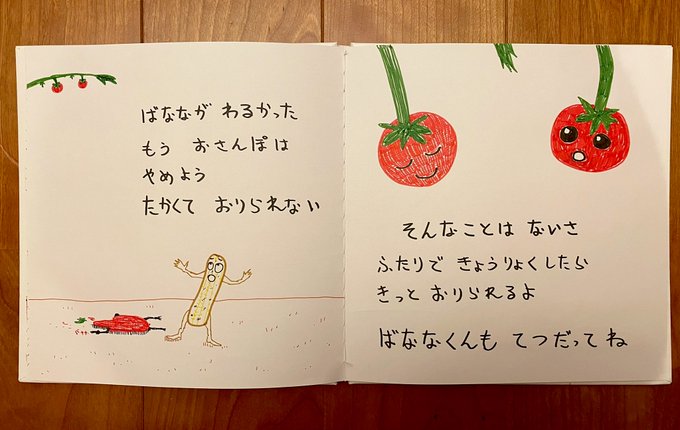 ばななが わるかった
もう おさんぽは
やめよう
たかくて おりられない
そんなことは ないさ
ふたりで きょうりょくしたら
きっと おりられるよ
ばななくんも てつだってね